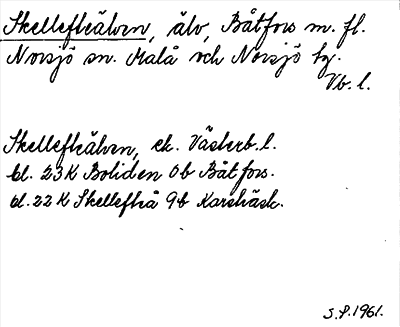 Skellefteälven, älv, Båtfors m. fl.
Norsjö sn. Malå och Norsjö tg.
Vb. l.
Skellefteälven, ek. Västerb. l.
bl. 23 K Boliden 0b Båtfors.
bl. 22 K Skellefteå 9b Karsbäck.
S.P. 1961.